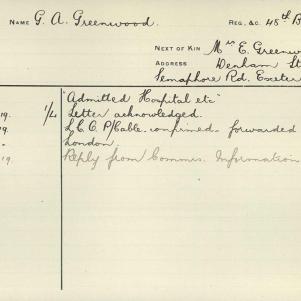 NAME G. A. Greenwood. REG. &C. 48th B
NEXT OF KIN Mrs E. Greenwoo
ADDRESS Denham St
Semaphore Rd. Exeter
"Admitted Hospital etc"
19. 1/4 Letter acknowledged.
19. L.C.C. P/Cable. confirmed. forwarded
London.
19 Reply from Commis. Information